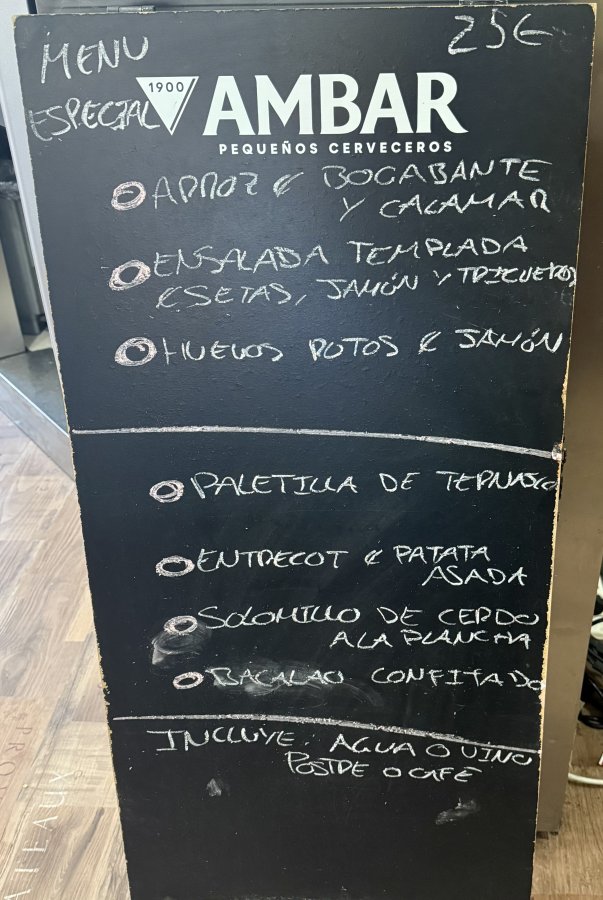 MENU 25€
ESPECIAL
1900 AMBAR
PEQUEÑOS CERVECEROS
ARROZ C BOGABANTE
Y CALAMAR
ENSALADA TEMPLADA
C SETAS, JAMÓN Y TRIGUEROS
HUEVOS ROTOS C JAMÓN
PALETILLA DE TERNASCO
ENTRECOT C PATATA
ASADA
SOLOMILLO DE CERDO
A LA PLANCHA
BACALAO CONFITADO
INCLUYE: AGUA O VINO
POSTRE O CAFÉ